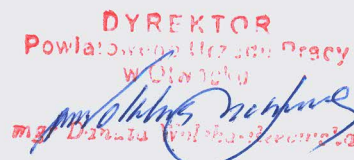 DYREKTOR
Powiatowego Urzędu Pracy
w Otwocku
mgr Danuta